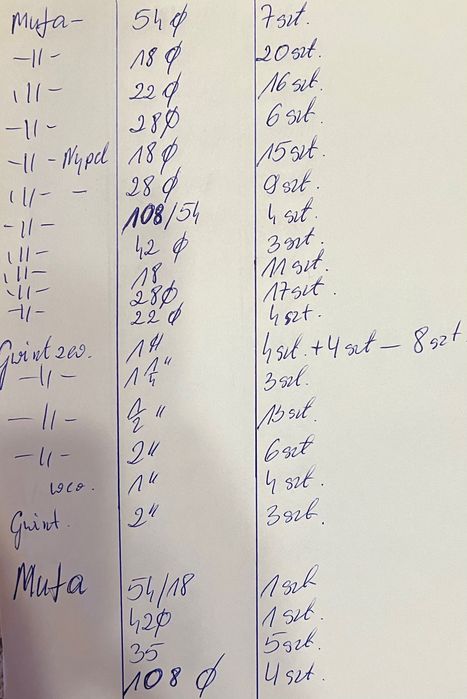 Mufa - 54 ∅ 7 szt.
-||- 18 ∅ 20 szt.
-||- 22 ∅ 16 szt.
-||- 28 ∅ 6 szt.
-||- Nypel 18 ∅ 15 szt.
-||- - 28 ∅ 9 szt.
-||- 108/54 4 szt.
-||- 42 ∅ 3 szt.
-||- 18 11 szt.
-||- 28∅ 17 szt.
-||- 22 ∅ 4 szt.
Gwint zew. 1" 4 szt. + 4 szt - 8 szt.
-||- 1 1/4" 3 szt.
-||- 1/2" 13 szt.
-||- 2" 6 szt
1" 4 szt.
Gwint. 2" 3 szt.
Mufa 54/18 1 szt
42∅ 1 szt.
35 5 szt.
108 ∅ 4 szt.